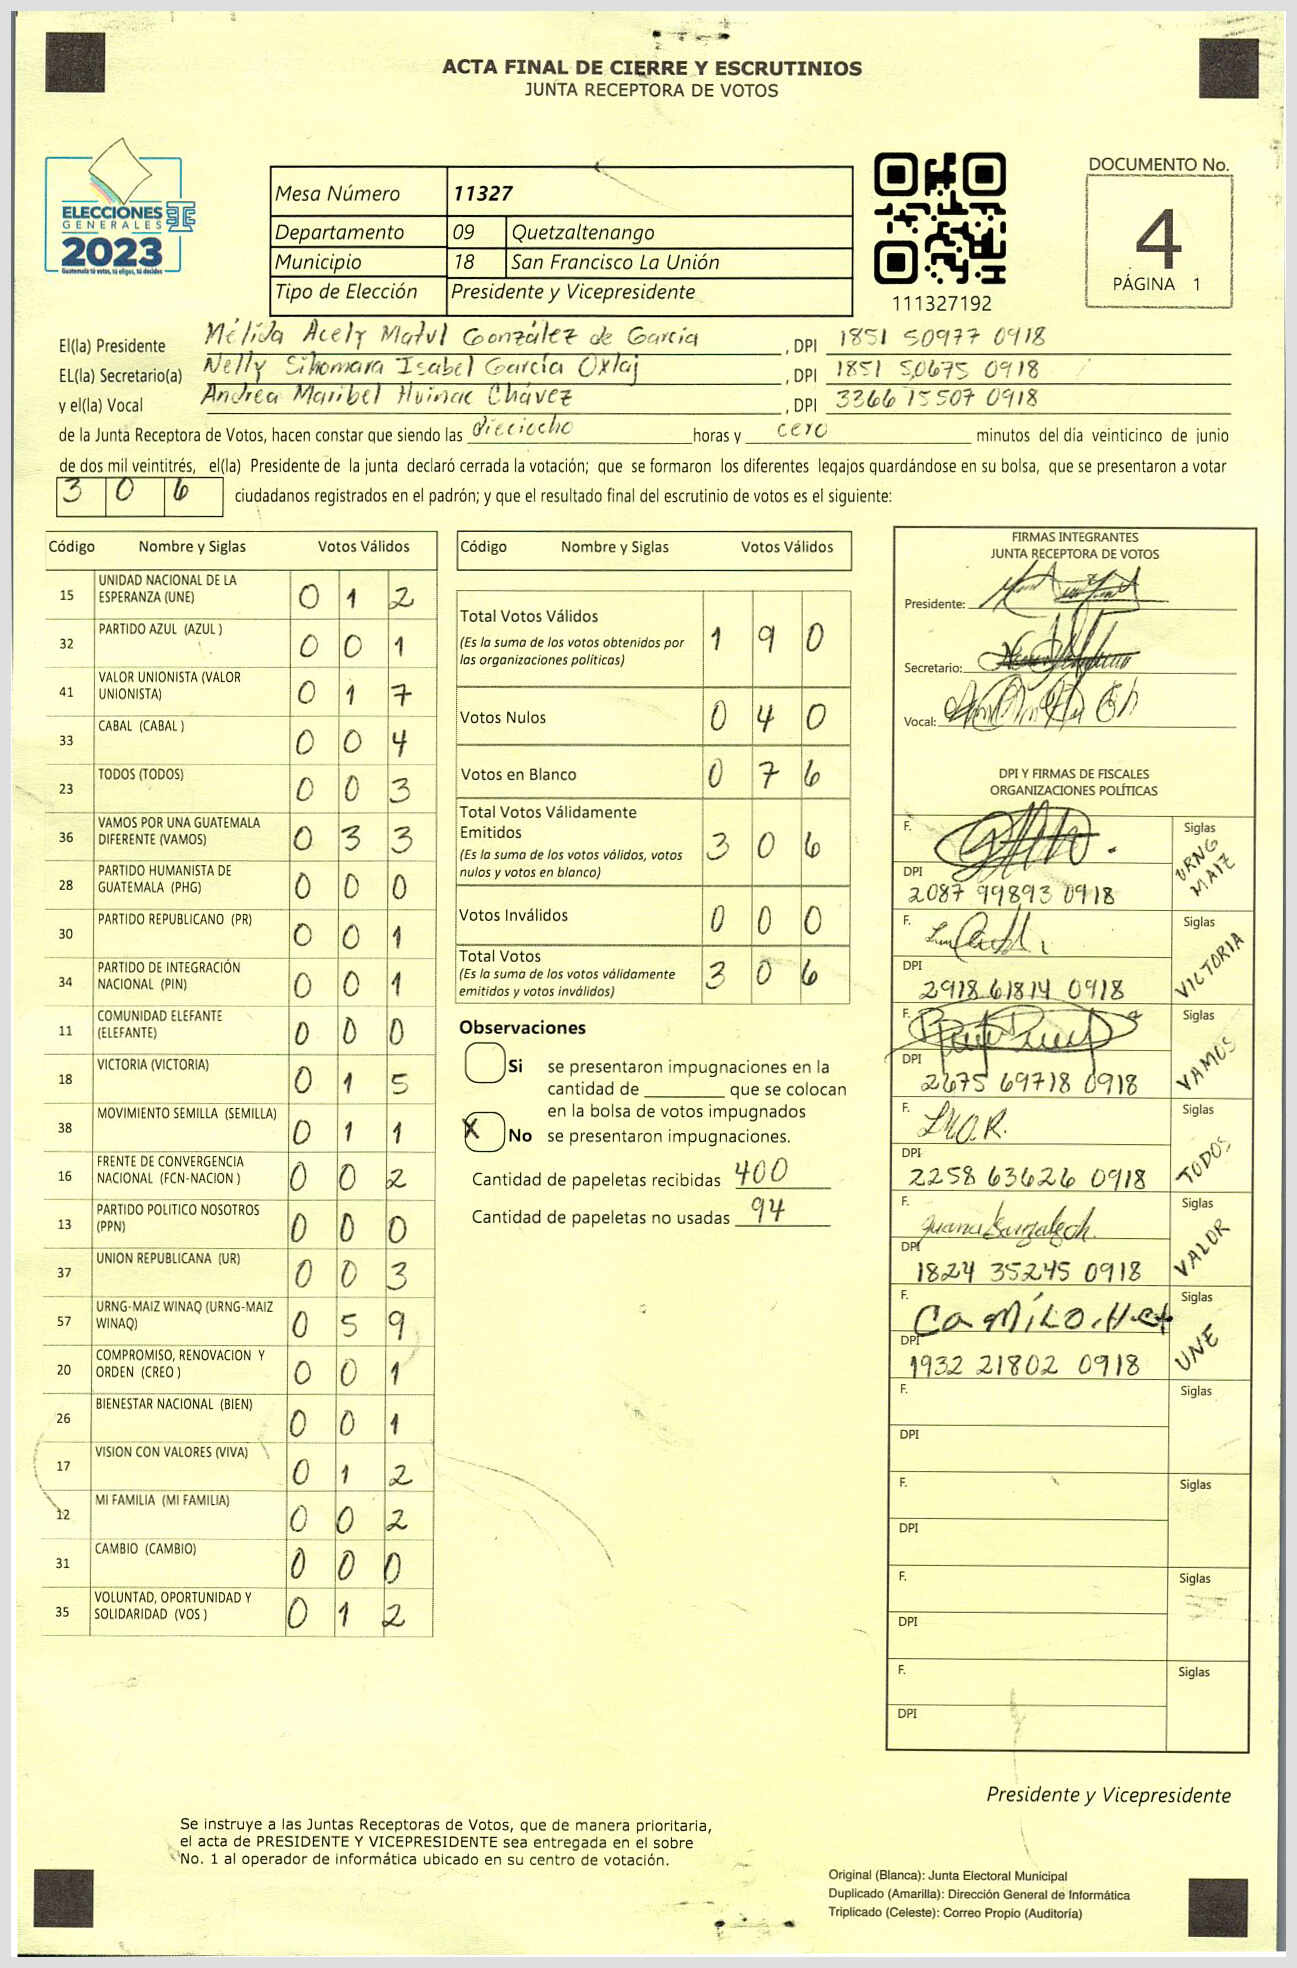 ACTA FINAL DE CIERRE Y ESCRUTINIOS
JUNTA RECEPTORA DE VOTOS
ELECCIONES
GENERALES
2023
Guatemala tú votas, tú eliges, tú decides
Mesa Número 11327
Departamento 09 Quetzaltenango
Municipio 18 San Francisco La Unión
Tipo de Elección Presidente y Vicepresidente
111327192
DOCUMENTO No.
4
PÁGINA 1
El(la) Presidente Mélida Acely Matul González de García, DPI 1851 50977 0918
EL(la) Secretario(a) Nelly Sihomara Isabel García Oxlaj, DPI 1851 50675 0918
y el(la) Vocal Andrea Maribel Huinac Chávez, DPI 3366 15507 0918
de la Junta Receptora de Votos, hacen constar que siendo las dieciocho horas y cero minutos del día veinticinco de junio
de dos mil veintitrés, el(la) Presidente de la junta declaró cerrada la votación; que se formaron los diferentes legajos guardándose en su bolsa, que se presentaron a votar
306 ciudadanos registrados en el padrón; y que el resultado final del escrutinio de votos es el siguiente:
Código Nombre y Siglas Votos Válidos
15 UNIDAD NACIONAL DE LA ESPERANZA (UNE) 0 1 2
32 PARTIDO AZUL (AZUL ) 0 0 1
41 VALOR UNIONISTA (VALOR UNIONISTA) 0 1 7
33 CABAL (CABAL ) 0 0 4
23 TODOS (TODOS) 0 0 3
36 VAMOS POR UNA GUATEMALA DIFERENTE (VAMOS) 0 3 3
28 PARTIDO HUMANISTA DE GUATEMALA (PHG) 0 0 0
30 PARTIDO REPUBLICANO (PR) 0 0 1
34 PARTIDO DE INTEGRACIÓN NACIONAL (PIN) 0 0 1
11 COMUNIDAD ELEFANTE (ELEFANTE) 0 0 0
18 VICTORIA (VICTORIA) 0 1 5
38 MOVIMIENTO SEMILLA (SEMILLA) 0 1 1
16 FRENTE DE CONVERGENCIA NACIONAL (FCN-NACION ) 0 0 2
13 PARTIDO POLITICO NOSOTROS (PPN) 0 0 0
37 UNION REPUBLICANA (UR) 0 0 3
57 URNG-MAIZ WINAQ (URNG-MAIZ WINAQ) 0 5 9
20 COMPROMISO, RENOVACION Y ORDEN (CREO ) 0 0 1
26 BIENESTAR NACIONAL (BIEN) 0 0 1
17 VISION CON VALORES (VIVA) 0 1 2
12 MI FAMILIA (MI FAMILIA) 0 0 2
31 CAMBIO (CAMBIO) 0 0 0
35 VOLUNTAD, OPORTUNIDAD Y SOLIDARIDAD (VOS ) 0 1 2
Código Nombre y Siglas Votos Válidos
Total Votos Válidos 1 9 0
(Es la suma de los votos obtenidos por
las organizaciones políticas)
Votos Nulos 0 4 0
Votos en Blanco 0 7 6
Total Votos Válidamente
Emitidos 3 0 6
(Es la suma de los votos válidos, votos
nulos y votos en blanco)
Votos Inválidos 0 0 0
Total Votos 3 0 6
(Es la suma de los votos válidamente
emitidos y votos inválidos)
Observaciones
Si se presentaron impugnaciones en la
cantidad de ________ que se colocan
en la bolsa de votos impugnados
X No se presentaron impugnaciones.
Cantidad de papeletas recibidas 400
Cantidad de papeletas no usadas 94
FIRMAS INTEGRANTES
JUNTA RECEPTORA DE VOTOS
Presidente:
Secretario:
Vocal:
DPI Y FIRMAS DE FISCALES
ORGANIZACIONES POLÍTICAS
F. Siglas URNG MAIZ
DPI 2087 99893 0918
F. Siglas VICTORIA
DPI 2918 61814 0918
F. Siglas VAMOS
DPI 2675 69718 0918
F. Siglas TODOS
DPI 2258 63626 0918
F. Siglas VALOR
DPI 1824 35245 0918
F. Camilo Siglas UNE
DPI 1932 21802 0918
F. Siglas
DPI
F. Siglas
DPI
F. Siglas
DPI
F. Siglas
DPI
Presidente y Vicepresidente
Se instruye a las Juntas Receptoras de Votos, que de manera prioritaria,
el acta de PRESIDENTE Y VICEPRESIDENTE sea entregada en el sobre
No. 1 al operador de informática ubicado en su centro de votación.
Original (Blanca): Junta Electoral Municipal
Duplicado (Amarilla): Dirección General de Informática
Triplicado (Celeste): Correo Propio (Auditoría)